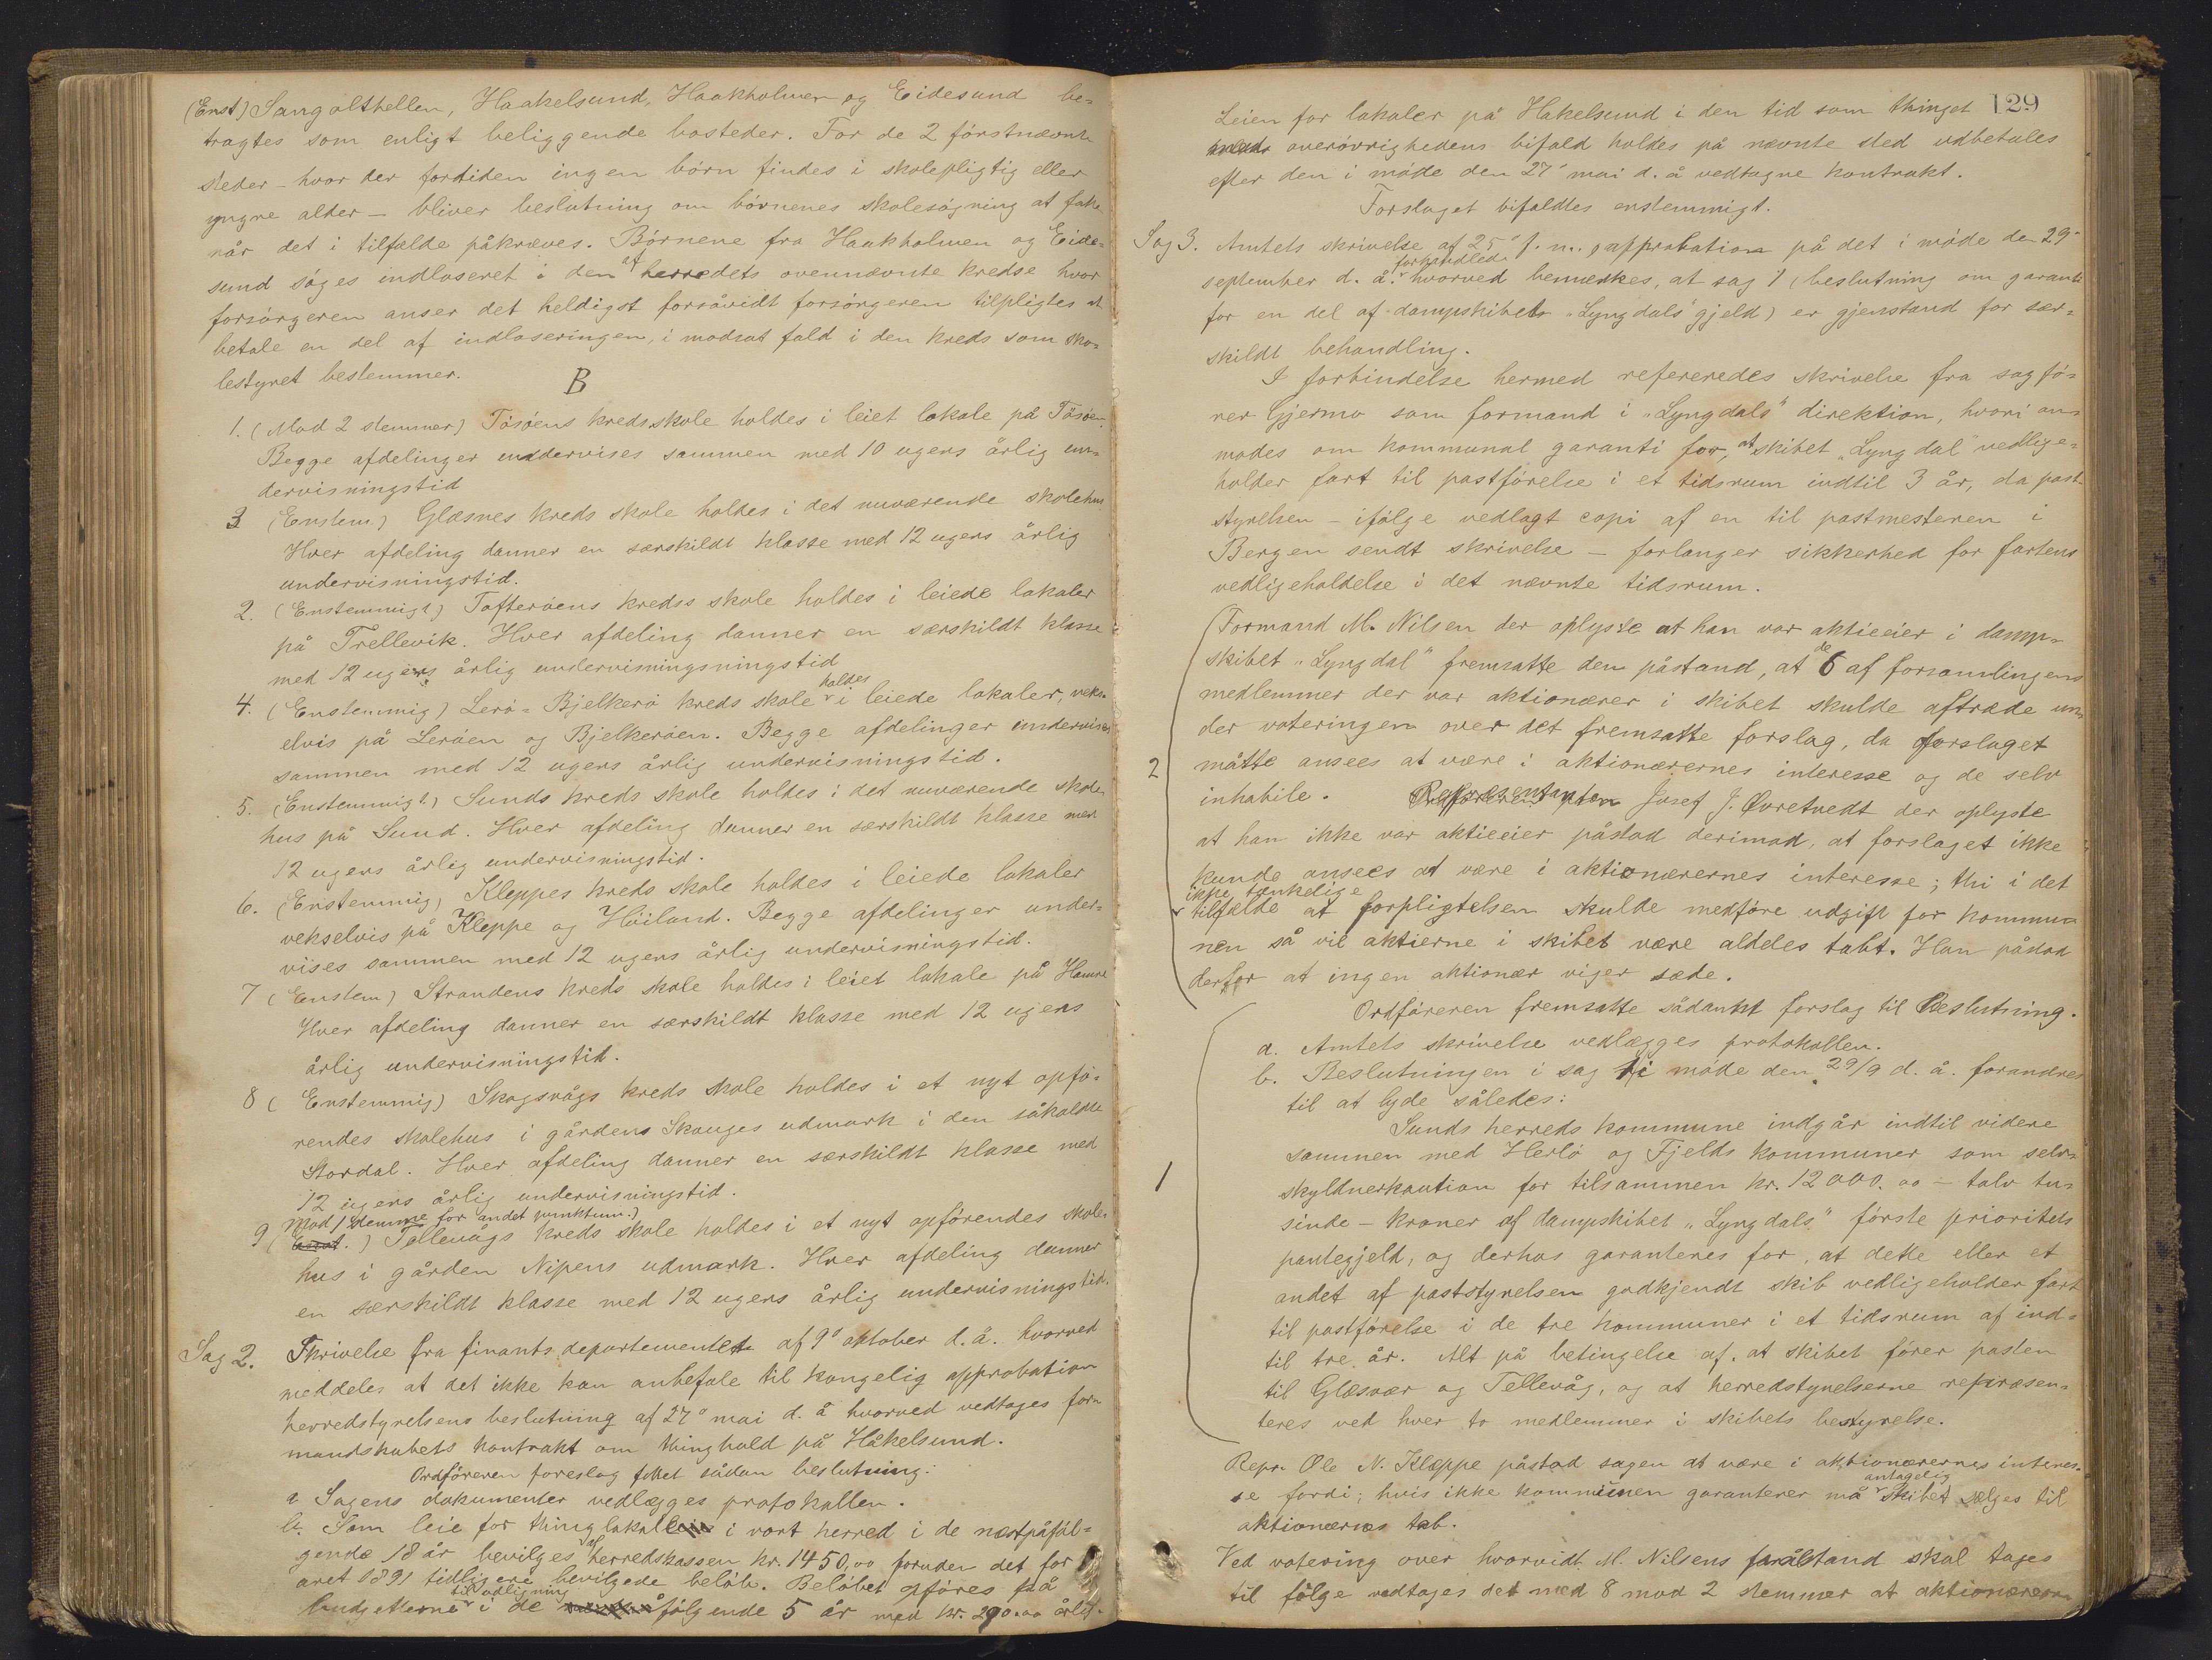 (Enst) Sangolthellen, Haakelsund, Haakholmen og Eidesund be-
tragtes som enligt beliggende bosteder. For de 2 förstnævnte
steder - hvor der fortiden ingen börn findes i skolepligtig eller
yngre alder - bliver beslutning om börnenes skolesögning at fatte
når det i tilfælde påkræves. Börnene fra Haakholmen og Eide-
sund söges indloseret i den af herredets ovennævnte kredse hvor
forsörgeren anser det heldigst forsåvidt forsörgeren tilpligtes at
betale en del af indloseringen, i modsat fald i den kreds som sko-
lestyret bestemmer.
B
1. (Mod 2 stemmer) Tösöens kredsskole holdes i leiet lokale på Tösöen.
Begge afdelinger undervises sammen med 10 ugers årlig un-
dervisningstid
3 (Enstem.) Glæsnes kreds skole holdes i det nuværende skolehus
Hver afdeling danner en særskildt klasse med 12 ugers årlig
undervisningstid.
2. (Enstemmigt) Tofteröens kredss skole holdes i leiede lokaler
på Trellevik. Hver afdeling danner en særskildt klasse
med 12 ugers årlig undervisningsningstid
4. (Enstemmig) Lerö- Bjelkerö kreds skole holdes i leiede lokaler, veks-
elvis på Leröen og Bjelkeröen. Begge afdelinger undervises
sammen med 12 ugers årlig undervisningstid.
5. (Enstemmigt) Sunds kreds skole holdes i det nuværende skole-
hus på Sund. Hver afdeling danner en særskildt klasse med
12 ugers årlig undervisningstid.
6. (Enstemmig) Kleppes kreds skole holdes i leiede lokaler
vekselvis på Kleppe og Höiland. Begge afdelinger under-
vises sammen med 12 ugers årlig undervisningstid.
7 (Enstem) Strandens kreds skole holdes i leiet lokale på Hamre
Hver afdeling danner en særskildt klasse med 12 ugers
årlig undervisningstid.
8 (Enstemmig) Skogsvågs kreds skole holdes i et nyt opfö-
rendes skolehus i gårdens Skauges udmark i den såkaldte
Stordal. Hver afdeling danner en særskildt klasse med
12 ugers årlig undervisningstid.
Mod 1 stemme for andet punktum.)
9 (Enst.) Tellevågs kreds skole holdes i et nyt opförendes skole-
hus i gården Nipens udmark. Hver afdeling danner
en særskildt klasse med 12 ugers årlig undervisningstid.
Sag 2. Skrivelse fra finants departementet af 9de oktober d.å. hvorved
meddeles at det ikke kan anbefale til kongelig approbation
herredstyrelsens beslutning af 27de mai d. å hvorved vedtages for-
mandskabets kontrakt om thinghold på Håkelsund.
Ordföreren foreslog fattet sådan beslutning:
a Sagens dokumenter vedlægges protokollen.
b. Som leie for thinglokale i vort herred i de næstpåföl-
gende 18 år bevilges af herredskassen kr. 1450,00 foruden det for
året 1891 tidligere bevilgede belöb. Belöbet opföres på
budgetterne til udligning i de følgende 5 år med kr. 290.00 årlig.
129
Leien for lokaler på Hakelsund i den tid som thinget
overövrighedens bifald holdes på nævnte sted udbetales
efter den i möde den 27de mai d. å vedtagne kontrakt.
Forslaget bifaldtes enstemmigt.
Sag 3. Amtets skrivelse af 25de f. m. approbation på det i möde den 29de
september d. å. forhandlede hvorved bemerkes, at sag 1 (beslutning om garanti
for en del af dampskibets "Lyngdals" gjeld) er gjenstand for sær-
skildt behandling.
I forbindelse hermed refereredes skrivelse fra sagfö-
rer Gjermo som formand i "Lyngdals" direktion, hvori an-
modes om kommunal garanti for, at skibet "Lyngdal" vedlige-
holder fart til postförelse i et tidsrum indtil 3 år, da post-
styrelsen - ifölge vedlagt copi af en til postmesteren i
Bergen sendt skrivelse - forlanger sikkerhed for fartens
vedligeholdelse i det nævnte tidsrum.
Formand M. Nilsen der oplyste at han var aktieeier i damp-
skibet "Lyngdal" fremsatte den påstand, at de 6 af forsamlingens
medlemmer der var aktionærer i skibet skulde aftræde un-
der voteringen over det fremsatte forslag, da forslaget
2 måtte ansees at være i aktionærernes interesse og de selv
inhabile. Repræsentanten Josef J. Øvretvedt der oplyste
at han ikke var aktieeier påstod derimod, at forslaget ikke
kunde ansees at være i aktionærernes interesse; thi i det
ikke tænkelige
tilfælde at forpligtelsen skulde medföre udgift for kommu-
nen så vil aktierne i skibet være aldeles tabt. Han påstod
derfor at ingen aktionær viger sæde.
Ordföreren fremsatte sådankt forslag til Beslutning.
a. Amtets skrivelse vedlægges protokollen.
b. Beslutningen i sag 1 i möde den 29/9 d. å. forandres
til at lyde således:
Sunds herreds kommune indgår indtil videre
sammen med Herlö og Fjelds kommuner som selv-
1 skyldnerkaution for tilsammen kr. 12000.00 - tolv tu-
sinde - kroner af dampskibet "Lyngdals" förste prioritets
pantegjeld, og derhos garanteres for, at dette eller et
andet af poststyrelsen godkjendt skib vedligeholder fart
til postförelse i de tre kommuner i et tidsrum af ind-
til tre år. Alt på betingelse af, at skibet förer posten
til Glæsvær og Tellevåg, og at herredstyrelserne repræsen-
teres ved hver to medlemmer i skibets bestyrelse.
Repr. Ole N. Kleppe påstod sagen at være i aktionærernes interes-
se fordi; hvis ikke kommunen garanterer må antagelig skibet sælges til
aktionærnes tab.
Ved votering over hvorvidt M. Nilsens påstand skal tages
til fölge vedtages det med 8 mod 2 stemmer at aktionærerne